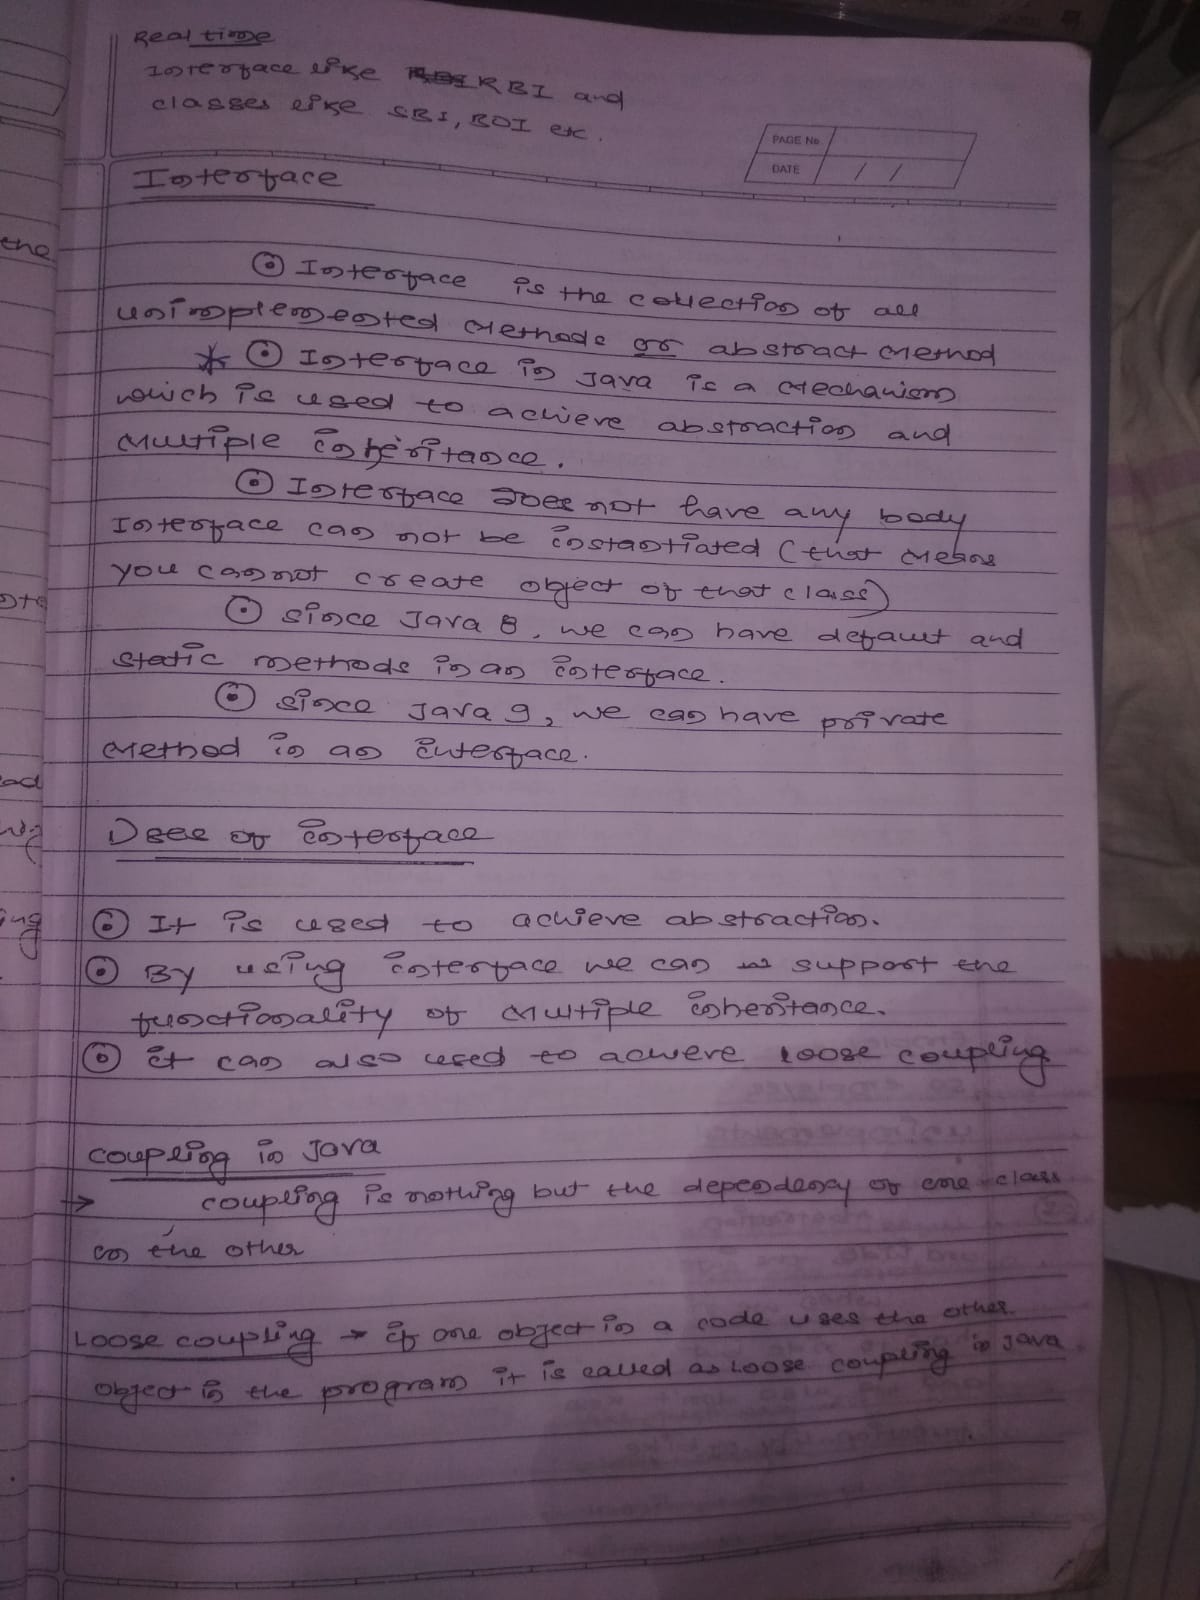 Real time
Interface like RBI and
classes like SBI, BOI etc.
PAGE No.
DATE / /
Interface
the
⊙ Interface is the collection of all
unimplemented methods or abstract method
* ⊙ Interface in Java is a mechanism
which is used to achieve abstraction and
multiple inheritance.
⊙ Interface does not have any body
Interface can not be instantiated (that means
you cannot create object of that class)
⊙ since Java 8, we can have default and
static methods in an interface.
⊙ since Java 9, we can have private
method in an interface.
Uses of interface
⊙ It is used to achieve abstraction.
⊙ By using interface we can support the
functionality of multiple inheritance.
⊙ it can also used to achieve loose coupling
coupling in Java
→ coupling is nothing but the dependency of one class
on the other
Loose coupling → if one object in a code uses the other
object in the program it is called as Loose coupling in Java